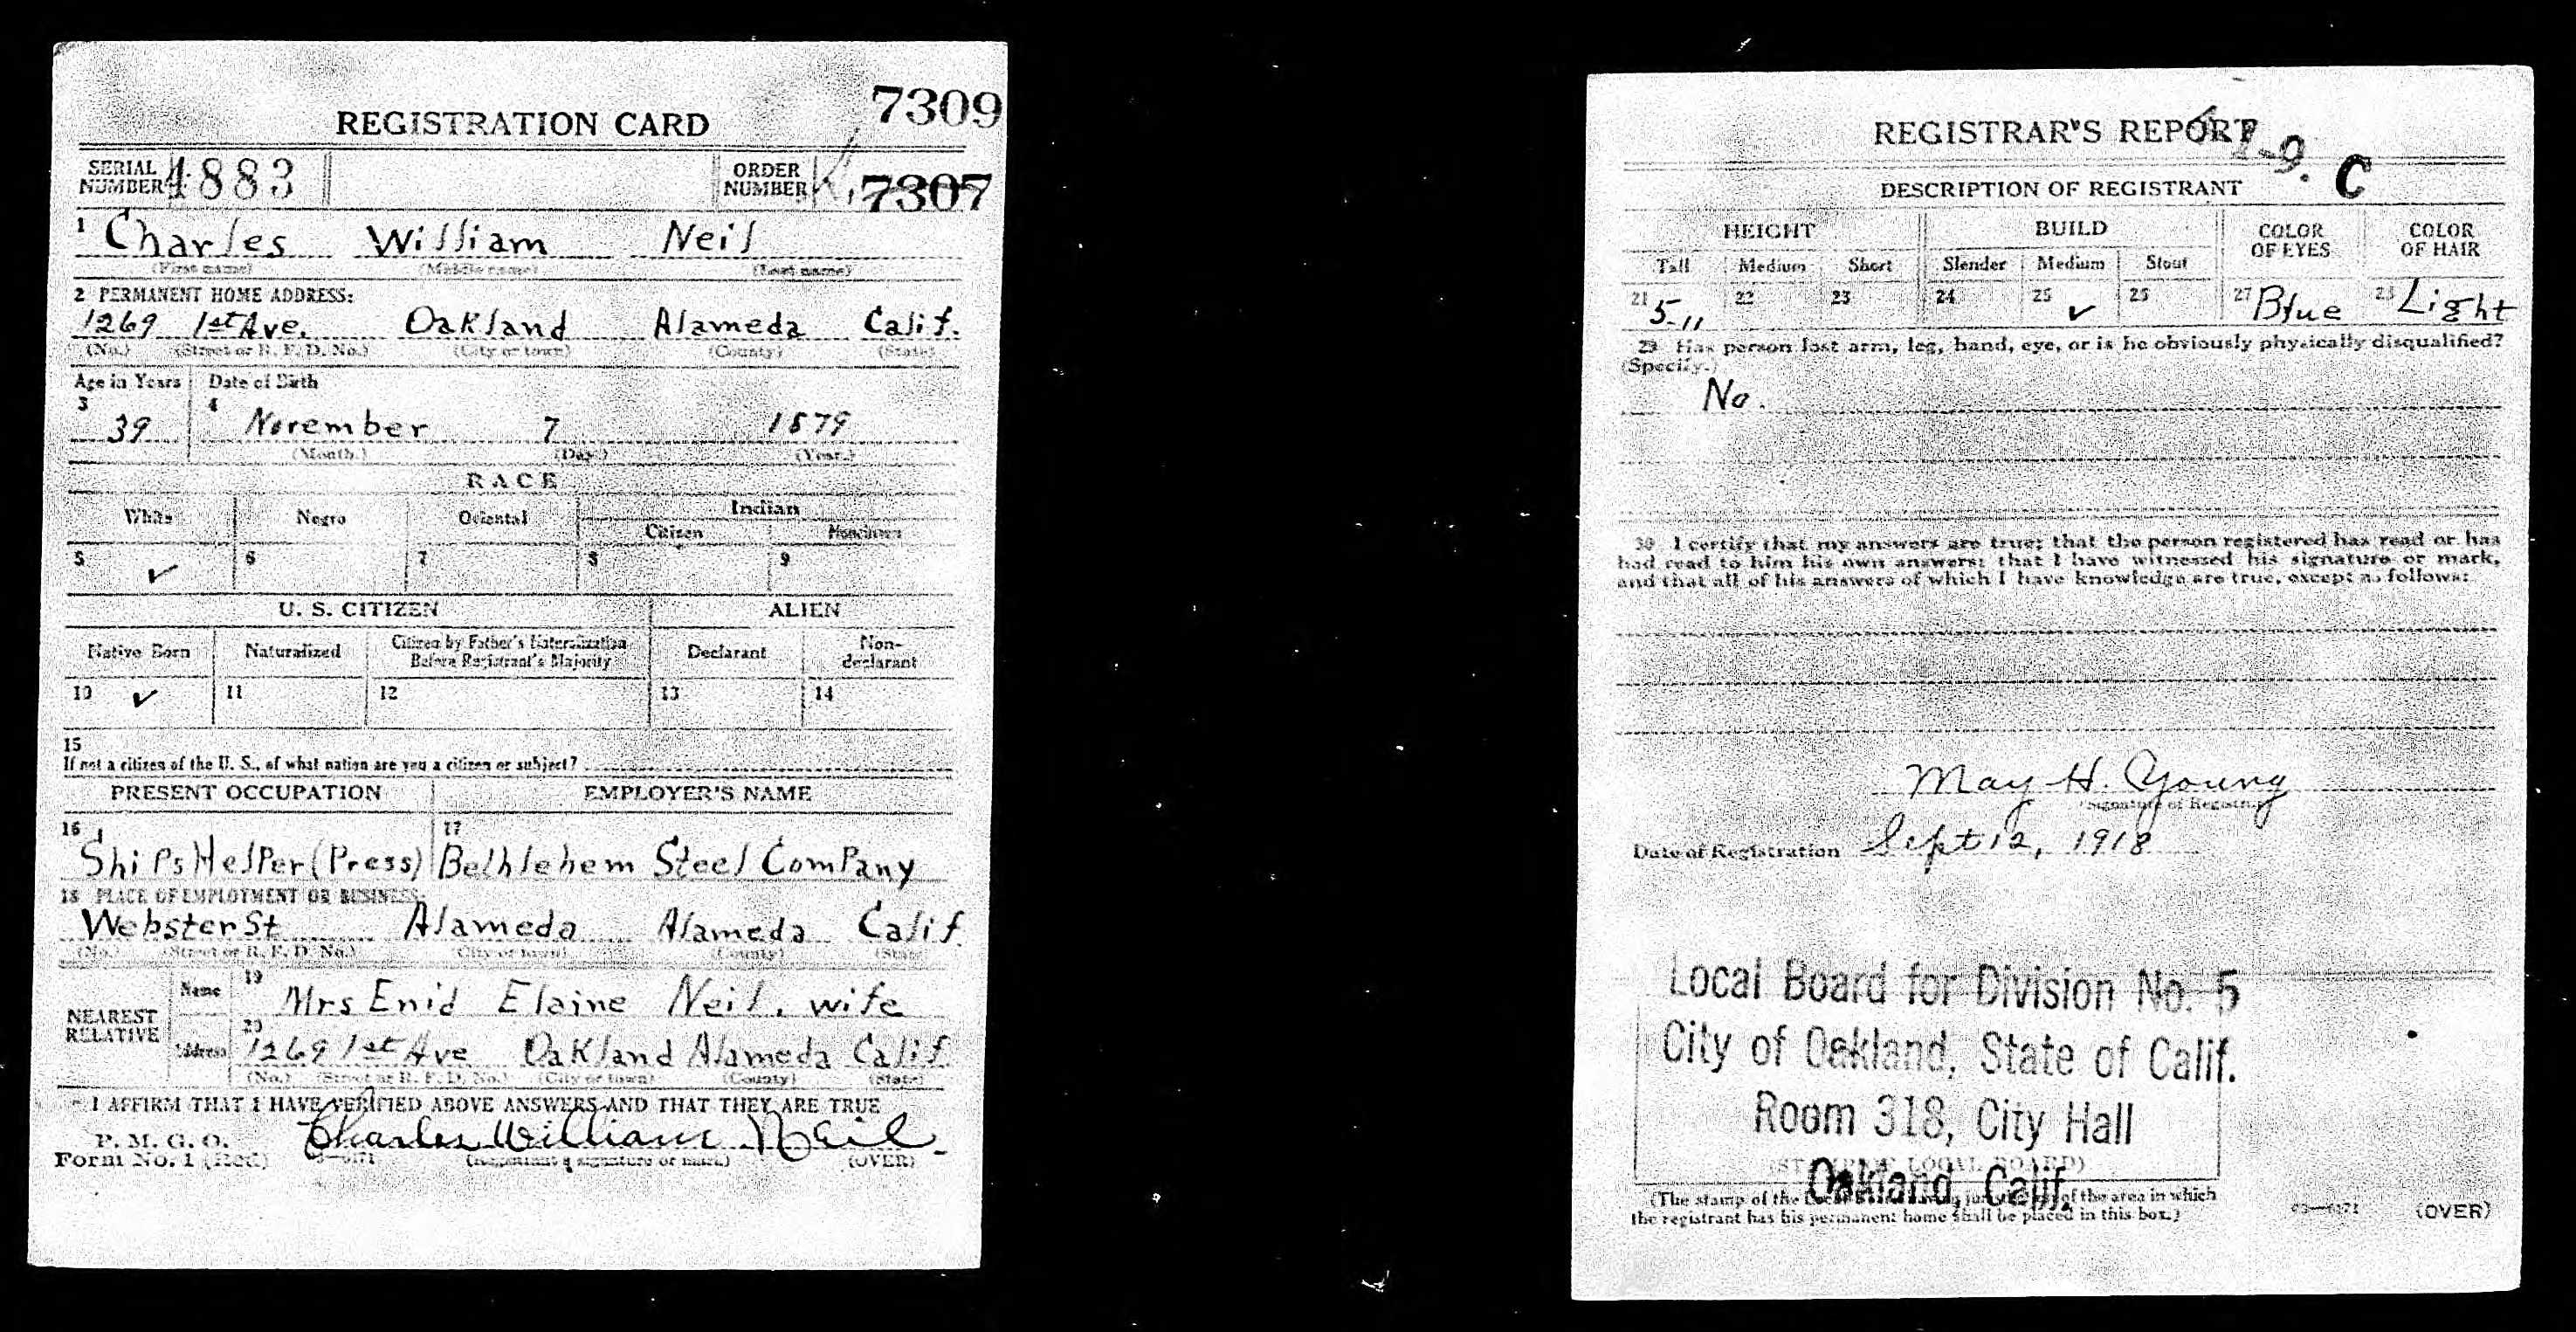 REGISTRATION CARD
7309
SERIAL NUMBER 1883
ORDER NUMBER 7307
1 Charles William Neil
(First name) (Middle name) (Last name)
2 PERMANENT HOME ADDRESS:
1269 1st Ave. Oakland Alameda Calif.
(No.) (Street or R. F. D. No.) (City or town) (County) (State)
Age in Years Date of Birth
3 39 4 November 7 1879
(Month.) (Day.) (Year.)
RACE
White Negro Oriental Indian
Citizen Noncitizen
5 ✓ 6 7 8 9
U. S. CITIZEN ALIEN
Native Born Naturalized Citizen by Father's Naturalization Before Registrant's Majority Declarant Non-declarant
10 ✓ 11 12 13 14
15
If not a citizen of the U. S., of what nation are you a citizen or subject?
PRESENT OCCUPATION EMPLOYER'S NAME
16 Ships Helper (Press) 17 Bethlehem Steel Company
18 PLACE OF EMPLOYMENT OR BUSINESS:
Webster St Alameda Alameda Calif.
(No.) (Street or R. F. D. No.) (City or town) (County) (State)
NEAREST RELATIVE Name 19 Mrs Enid Elaine Neil. wife
Address 20 1269 1st Ave Oakland Alameda Calif.
(No.) (Street or R. F. D. No.) (City or town) (County) (State)
I AFFIRM THAT I HAVE VERIFIED ABOVE ANSWERS AND THAT THEY ARE TRUE
P. M. G. O.
Form No. 1 (Red) Charles William Neil
(Registrant's signature or mark) (OVER)
REGISTRAR'S REPORT
C
DESCRIPTION OF REGISTRANT
HEIGHT BUILD COLOR OF EYES COLOR OF HAIR
Tall Medium Short Slender Medium Stout
21 5-11 22 23 24 25 ✓ 26 27 Blue 28 Light
29 Has person lost arm, leg, hand, eye, or is he obviously physically disqualified?
(Specify.)
No.
30 I certify that my answers are true; that the person registered has read or has
had read to him his own answers; that I have witnessed his signature or mark,
and that all of his answers of which I have knowledge are true, except as follows:
May H. Young
(Signature of Registrar)
Date of Registration Sept 12, 1918
Local Board for Division No. 5
City of Oakland, State of Calif.
Room 318, City Hall
Oakland, Calif.
(STAMP OF LOCAL BOARD)
(The stamp of the Local Board having jurisdiction of the area in which
the registrant has his permanent home shall be placed in this box.)
03—6171 (OVER)